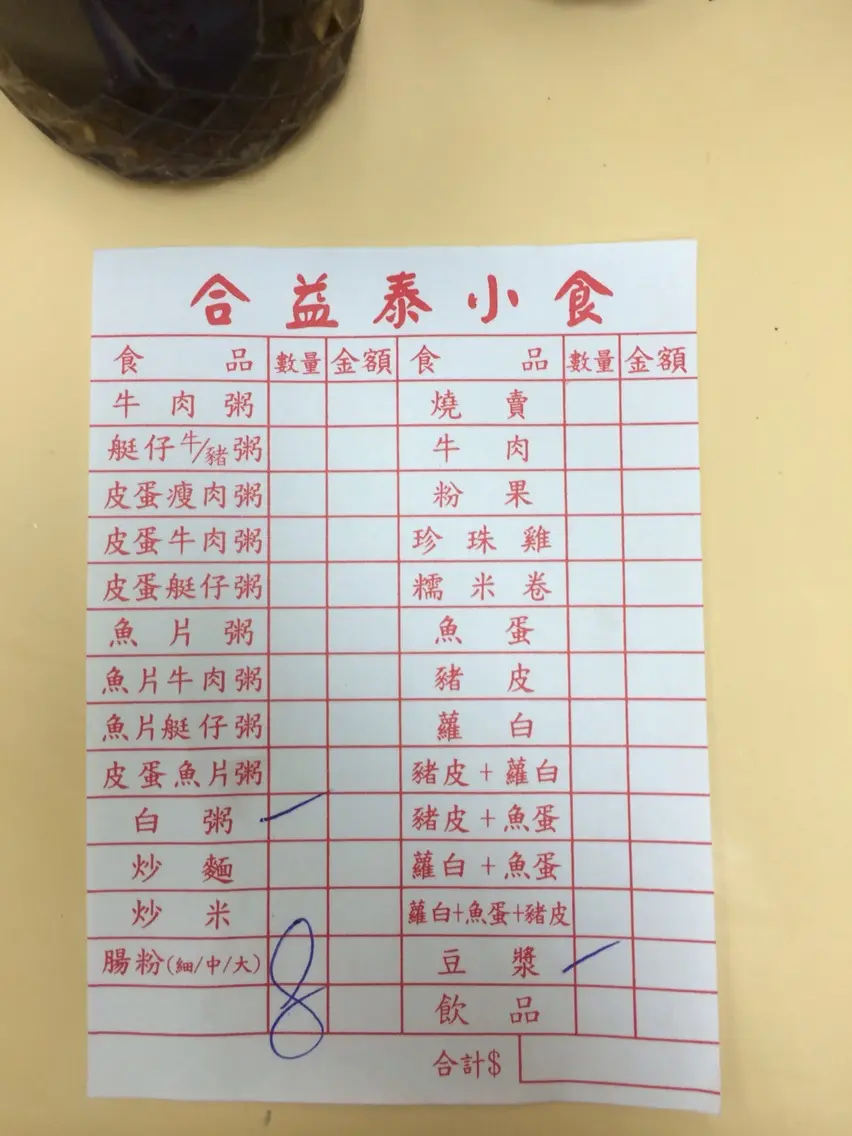 合益泰小食
食品 數量 金額 食品 數量 金額
牛肉粥 燒賣
艇仔牛/豬粥 牛肉
皮蛋瘦肉粥 粉果
皮蛋牛肉粥 珍珠雞
皮蛋艇仔粥 糯米卷
魚片粥 魚蛋
魚片牛肉粥 豬皮
魚片艇仔粥 蘿白
皮蛋魚片粥 豬皮+蘿白
白粥 豬皮+魚蛋
炒麵 蘿白+魚蛋
炒米 蘿白+魚蛋+豬皮
腸粉(細/中/大) 豆漿
8 飲品
合計$